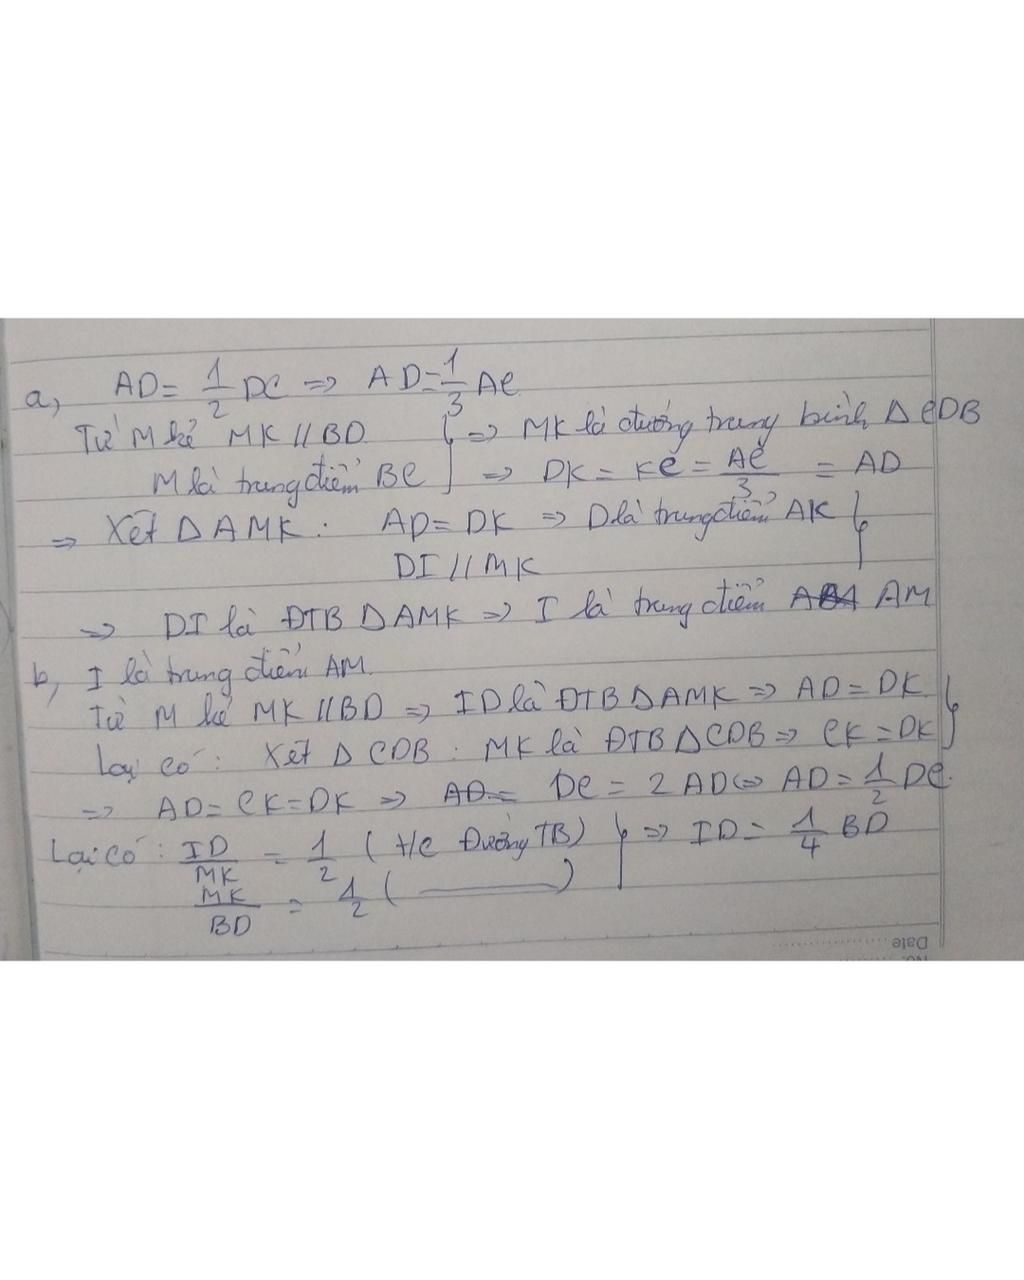 a, AD = 1/2 DC => AD = 1/3 AC
Từ M kẻ MK // BD } => MK là đường trung bình Δ CDB
M là trung điểm BC } => DK = KC = AC/3 = AD
=> Xét Δ AMK : AD = DK => D là trung điểm AK }
DI // MK
=> DI là ĐTB Δ AMK => I là trung điểm AM
b, I là trung điểm AM.
Từ M kẻ MK // BD => ID là ĐTB Δ AMK => AD = DK }
Lại có : Xét Δ CDB : MK là ĐTB Δ CDB => CK = DK
=> AD = CK = DK => DC = 2 AD <=> AD = 1/2 DC.
Lại có : ID/MK = 1/2 ( t/c Đường TB) } => ID = 1/4 BD
MK/BD = 1/2 ( ——— )
Date
No.